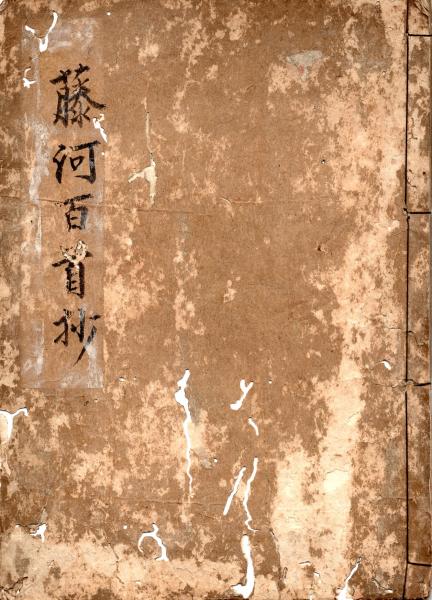 藤河百首抄